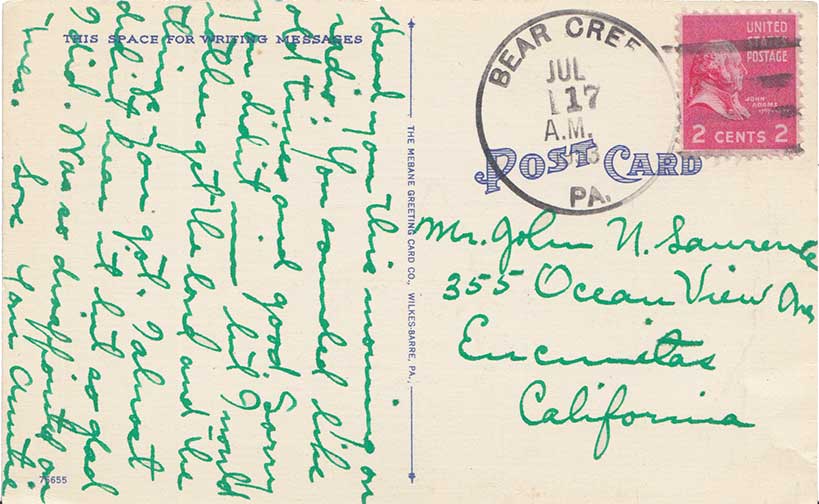 THIS SPACE FOR WRITING MESSAGES
Heard you this morning on
radio: You sounded like
old times and good. Sorry
you didn't win but I would
rather get the and the
you got. I almost
didn't hear it but so glad
I did. Was so disappointed on
Tues. Love Your Auntie
75655
THE MEBANE GREETING CARD CO., WILKES-BARRE, PA.,
BEAR CREE
JUL
17
A.M.
PA.
UNITED
STATES
POSTAGE
JOHN
ADAMS
2 CENTS 2
POST CARD
Mr. John N. Lawrence
355 Ocean View Ave
Encinitas
California